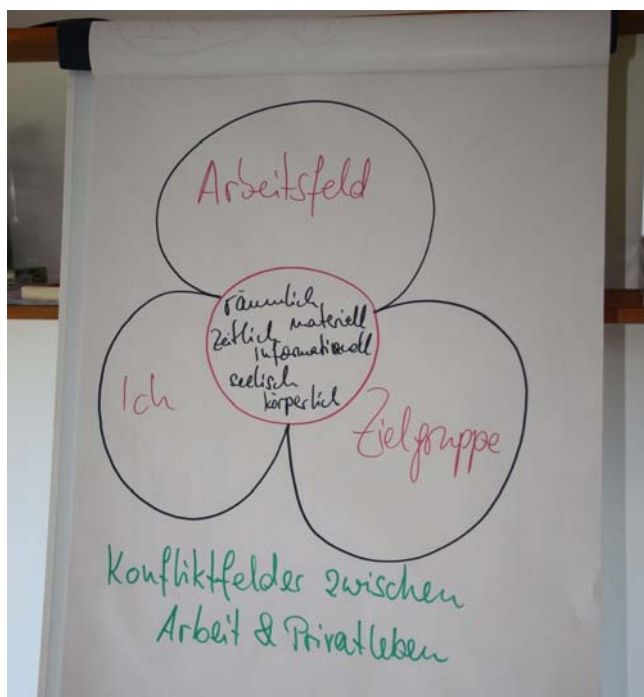 Arbeitsfeld
räumlich
zeitlich materiell
informationell
seelisch
körperlich
Ich
Zielgruppe
Konfliktfelder zwischen
Arbeit & Privatleben